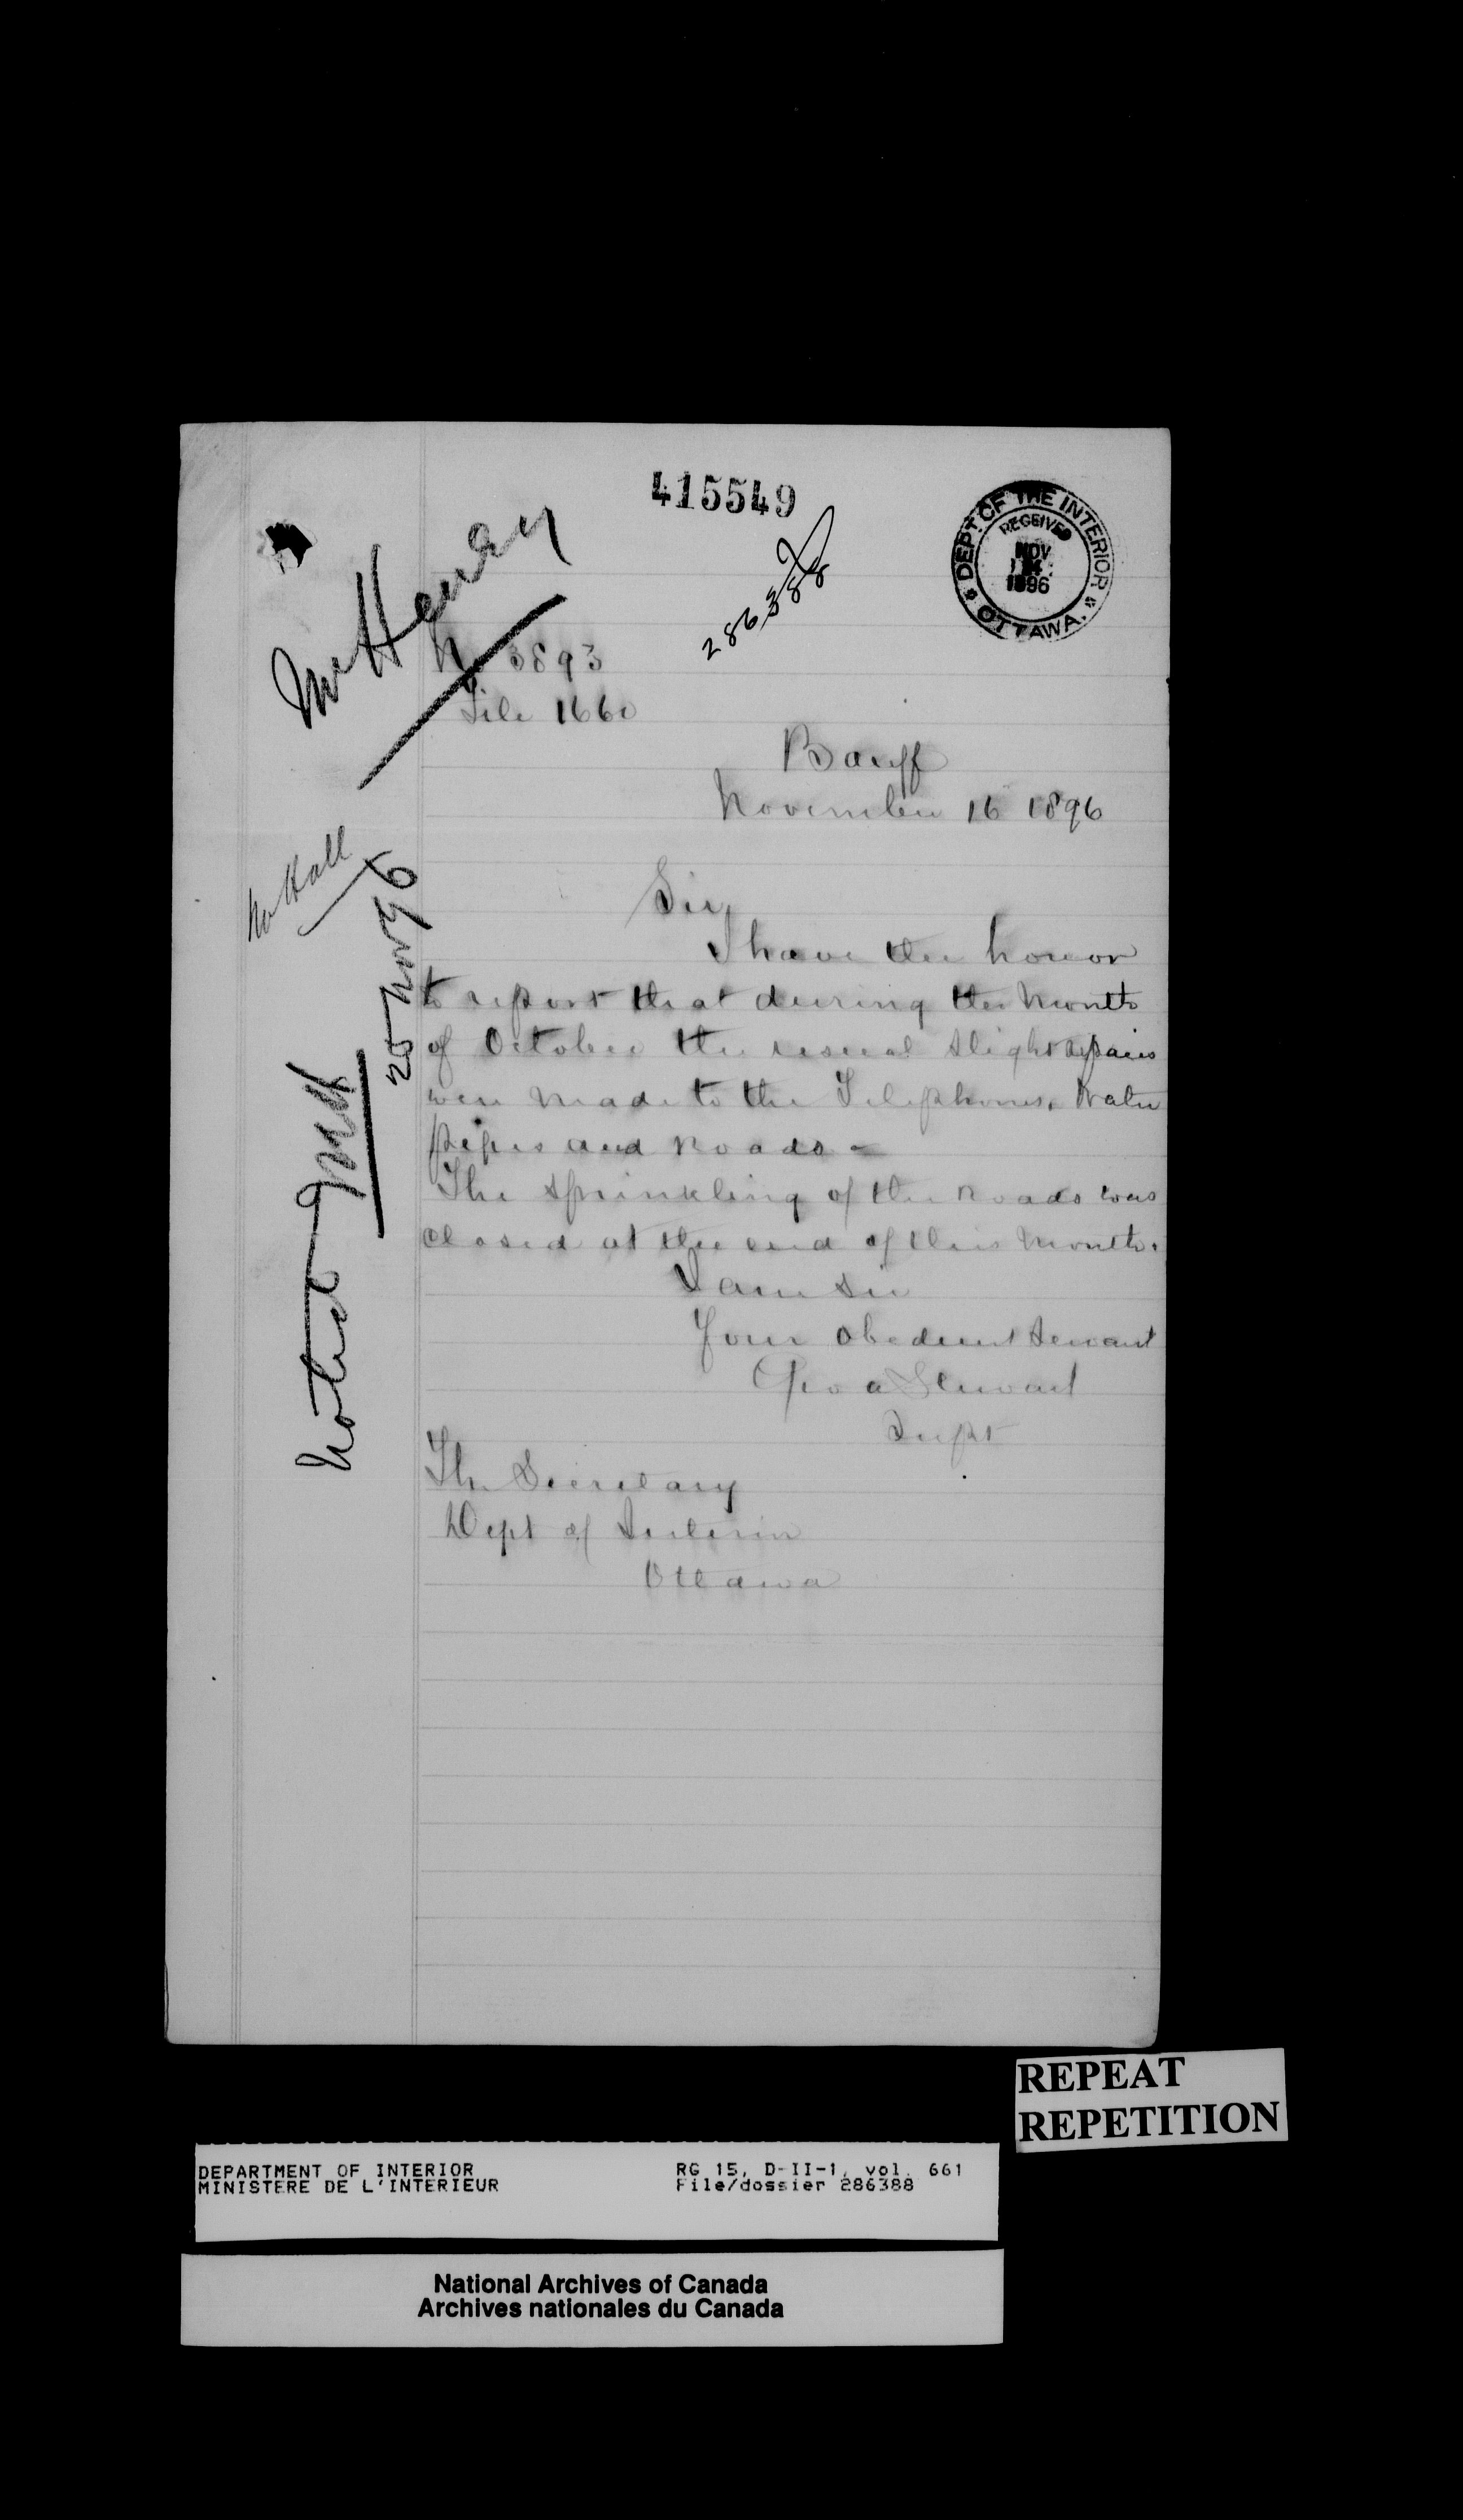 415549
DEPT. OF THE INTERIOR
RECEIVED
NOV
1896
OTTAWA.
286388
Mr Henry
No 3893
File 1660
Banff
November 16 1896
Mr Hall
Sir,
I have the honor
to report that during the Month
of October the usual slight repairs
were made to the Telephones, Water
pipes and Roads -
The sprinkling of the Roads was
closed at the end of this Month.
I am Sir
Your obedient Servant
Geo A Stewart
Supt
The Secretary
Dept of Interior
Ottawa
Noted
25 Nov 96
REPEAT
REPETITION
DEPARTMENT OF INTERIOR
MINISTERE DE L'INTERIEUR
RG 15, D-II-1, vol. 661
File/dossier 286388
National Archives of Canada
Archives nationales du Canada